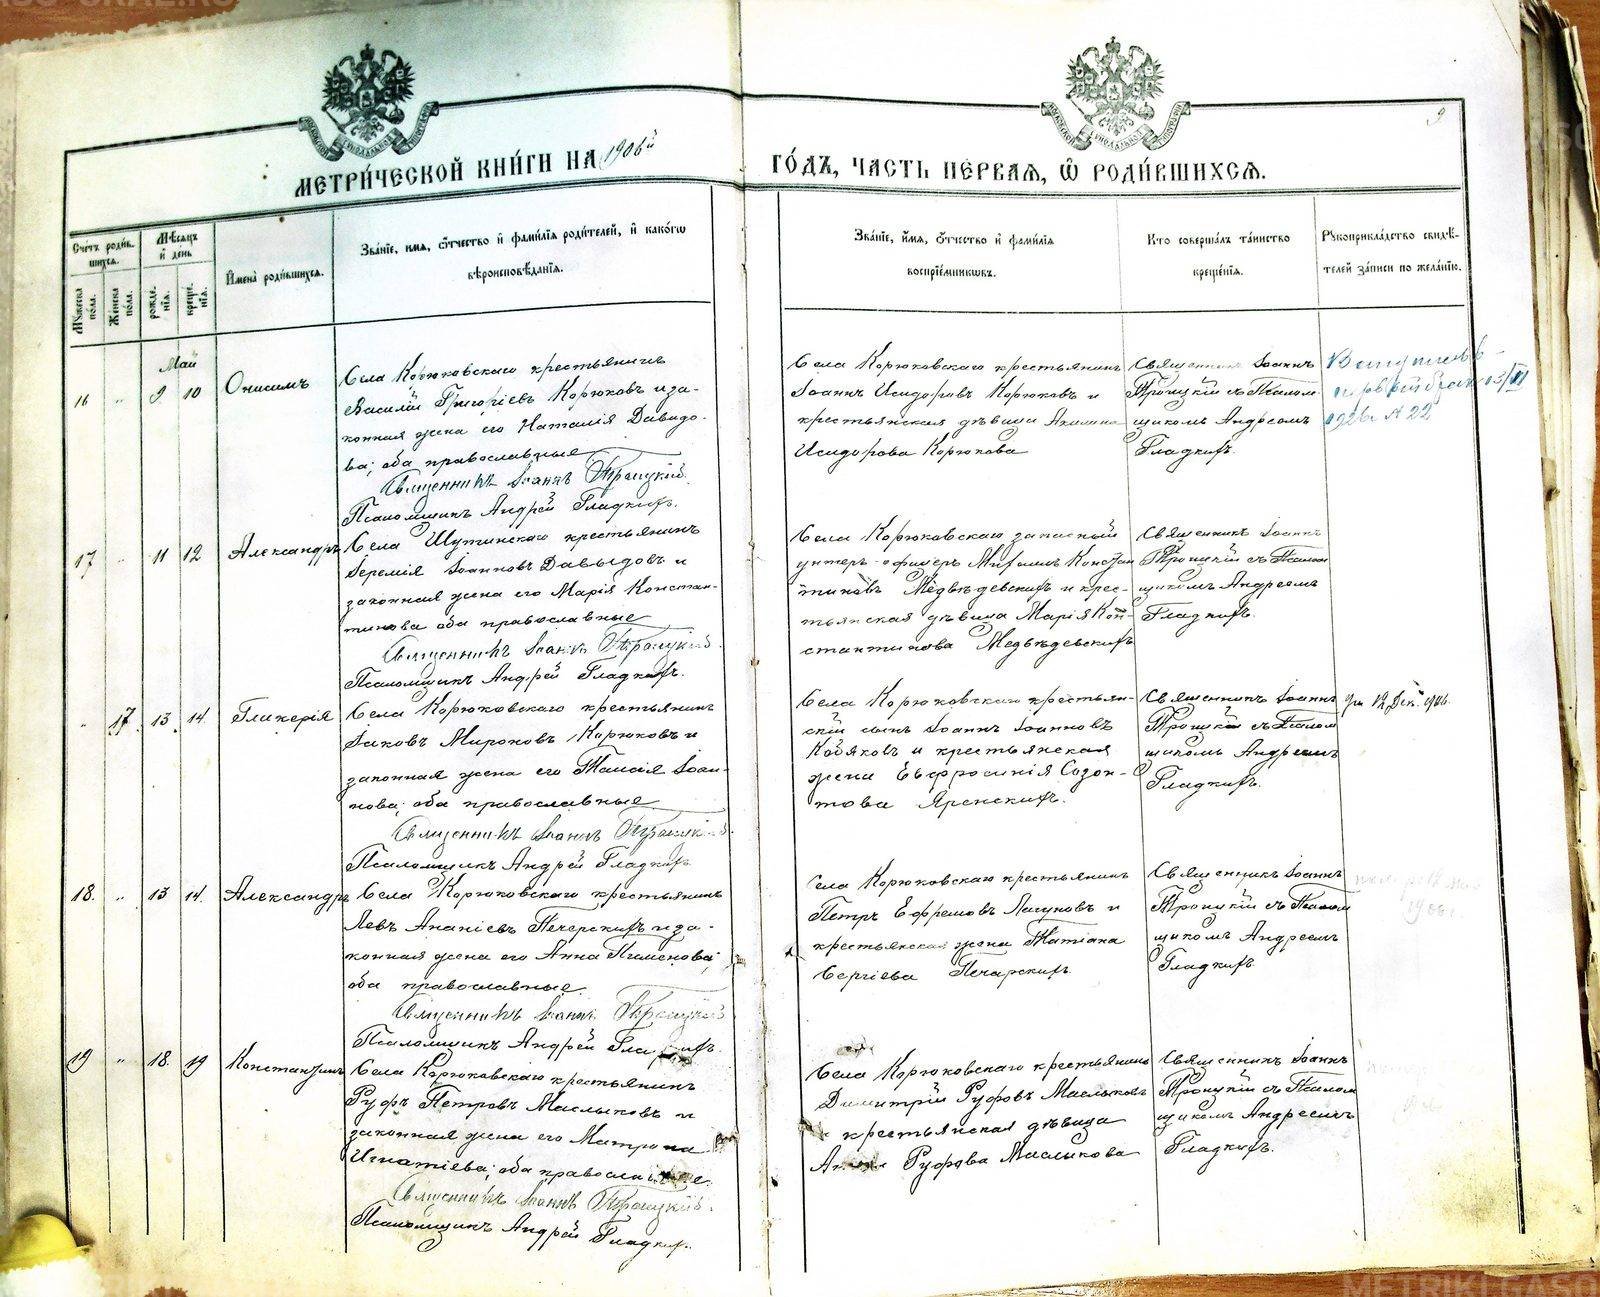 МЕТРИ́ЧЕСКОЙ КНИ́ГИ НА 1906й
ГО́ДЪ, ЧАСТЬ ПЕ́РВАЯ, Ѡ РОДИ́ВШИХСЯ.
9
Счетъ роди́вшихся.
Му́жеска по́ла.
Же́нска по́ла.
Мѣ́сяцъ и́ день
рожде́нїя.
креще́нїя.
И́мена роди́вшихся.
Зва́нїе, имя, ѻ́тчество и́ фами́лїя роди́телей, и́ како́гѡ
вѣроисповѣ́данїя.
Зва́нїе, и́мя, ѻ́тчество и́ фами́лїя
воспрїе́мникѡвъ.
Кто соверша́лъ та́инство
креще́нїя.
Рꙋкоприкла́дство свидѣ́телей за́писи по жела́нїю.
Май
16 „ 9 10 Онисимъ
Села Корюковскаго крестьянинъ
Василій Григоріевъ Корюковъ и за-
конная жена его Наталія Давидо-
ва; оба православные
Священникъ Іоаннъ Троицкій.
Псаломщикъ Андрей Гладкихъ.
Села Корюковскаго крестьянинъ
Іоаннъ Исидоровъ Корюковъ и
крестьянская дѣвица Акилина
Исидорова Корюкова
Священникъ Іоаннъ
Троицкій съ Псалом-
щикомъ Андреемъ
Гладкихъ.
1926 № 22
17 „ 11 12 Александръ
Села Шутинскаго крестьянинъ
Іеремія Іоанновъ Давыдовъ и
законная жена его Марія Констан-
тинова оба православные
Священникъ Іоаннъ Троицкій.
Псаломщикъ Андрей Гладкихъ.
Села Корюковскаго запасный
унтеръ-офицеръ Михаилъ Констан
тиновъ Медвѣдевскихъ и крес-
тьянская дѣвица Марія Кон-
стантинова Медвѣдевскихъ
Священникъ Іоаннъ
Троицкій съ Псалом
щикомъ Андреемъ
Гладкихъ.
„ 17 13 14 Гликерія
Села Корюковскаго крестьянинъ
Іаковъ Мироновъ Корюковъ и
законная жена его Таисія Іоан-
нова; оба православные
Священникъ Іоаннъ Троицкій.
Псаломщикъ Андрей Гладкихъ
Села Корюковскаго крестьян-
скій сынъ Іоаннъ Іоанновъ
Кобяковъ и крестьянская
жена Евфросинія Созон-
това Яренскихъ.
Священникъ Іоаннъ
Троицкій съ Псалом
щикомъ Андреемъ
Гладкихъ.
ум 12 Дек. 1906
18. „ 13 14. Александръ
Села Корюковскаго крестьянинъ
Левъ Ананіевъ Печерскихъ и за-
конная жена его Анна Пименова;
оба православные.
Священникъ Іоаннъ Троицкій
Псаломщикъ Андрей Гладкихъ.
Села Корюковскаго крестьянинъ
Петръ Ефремовъ Лагуновъ и
крестьянская жена Татіана
Сергіева Печерскихъ
Священникъ Іоаннъ
Троицкій съ Псалом
щикомъ Андреемъ
Гладкихъ
1906
19 „ 18. 19 Константинъ
Села Корюковскаго крестьянинъ
Руфъ Петровъ Маслыковъ и
законная жена его Матрона
Игнатіева; оба православные.
Священникъ Іоаннъ Троицкій.
Псаломщикъ Андрей Гладкихъ.
Села Корюковскаго крестьянинъ
Димитрій Руфовъ Маслыковъ
крестьянская дѣвица
Руфова Маслыкова
Священникъ Іоаннъ
Троицкій съ Псалом
щикомъ Андреемъ
Гладкихъ.
METRIKI.GASO